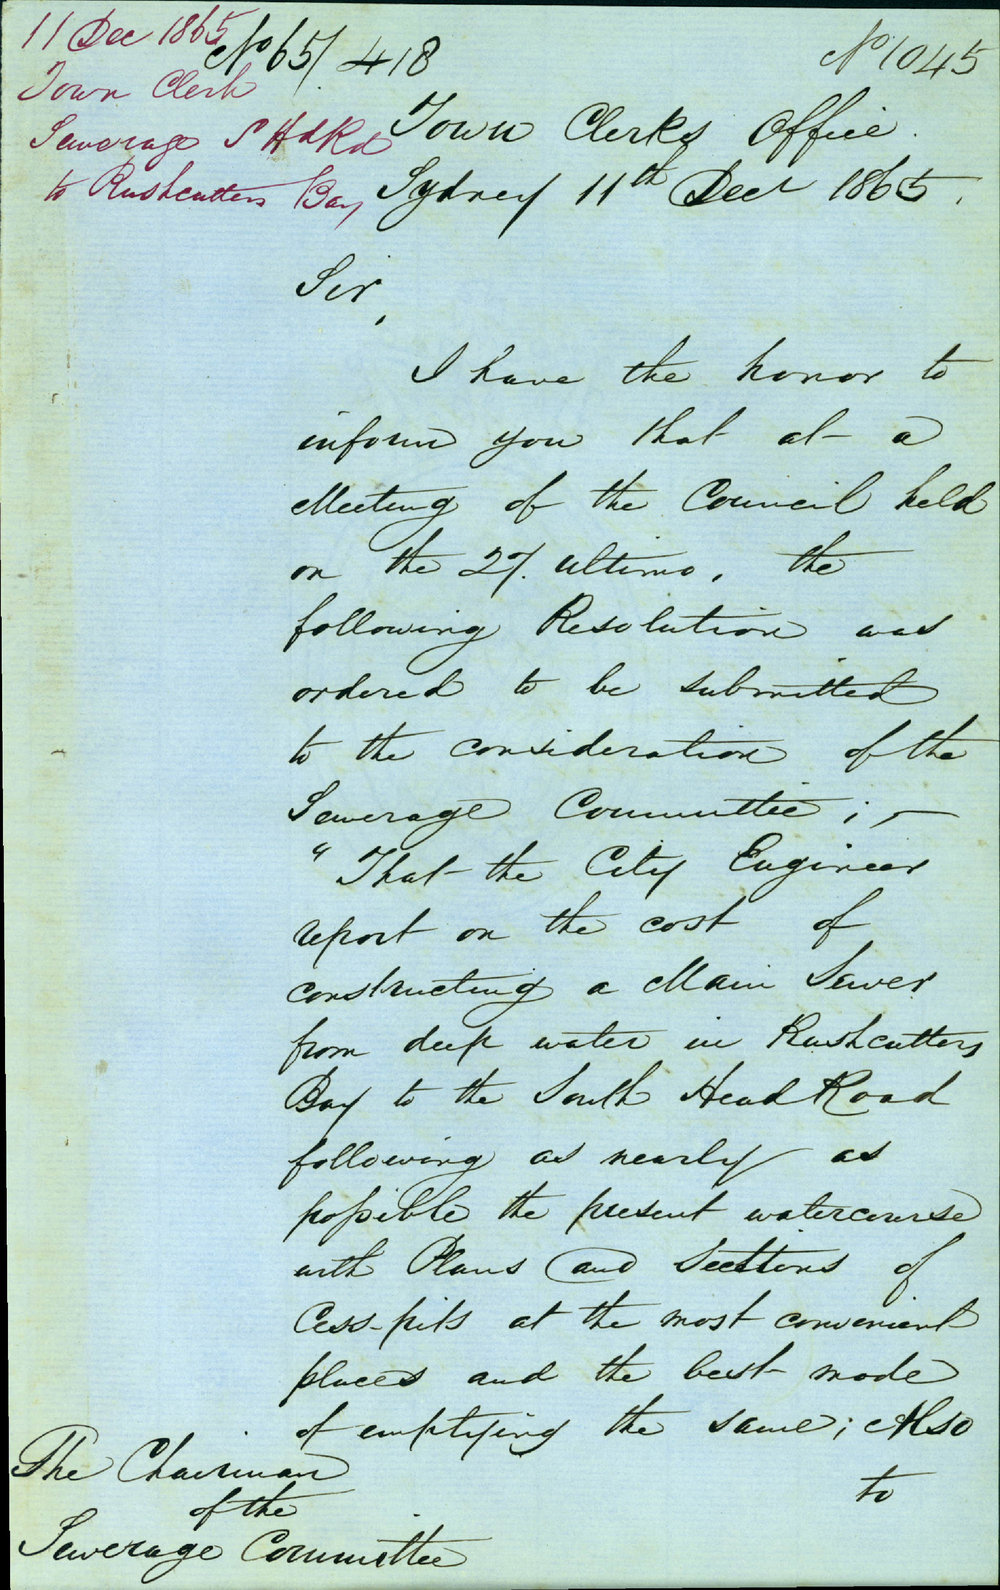 11 Dec 1865
Town Clerk
Sewerage S Hd Rd
to Rushcutters Bay
No 65/418
No 1045
Town Clerks Office.
Sydney 11th Decr 1865.
Sir,
I have the honor to
inform you that at a
Meeting of the Council held
on the 27. ultimo, the
following Resolution was
ordered to be submitted
to the consideration of the
Sewerage Committee; —
"That the City Engineer
report on the cost of
constructing a Main Sewer
from deep water in Rushcutters
Bay to the South Head Road
following as nearly as
possible the present watercourse
with Plans and Sections of
Cess-pits at the most convenient
places and the best mode
of emptying the same; Also
to
The Chairman
of the
Sewerage Committee